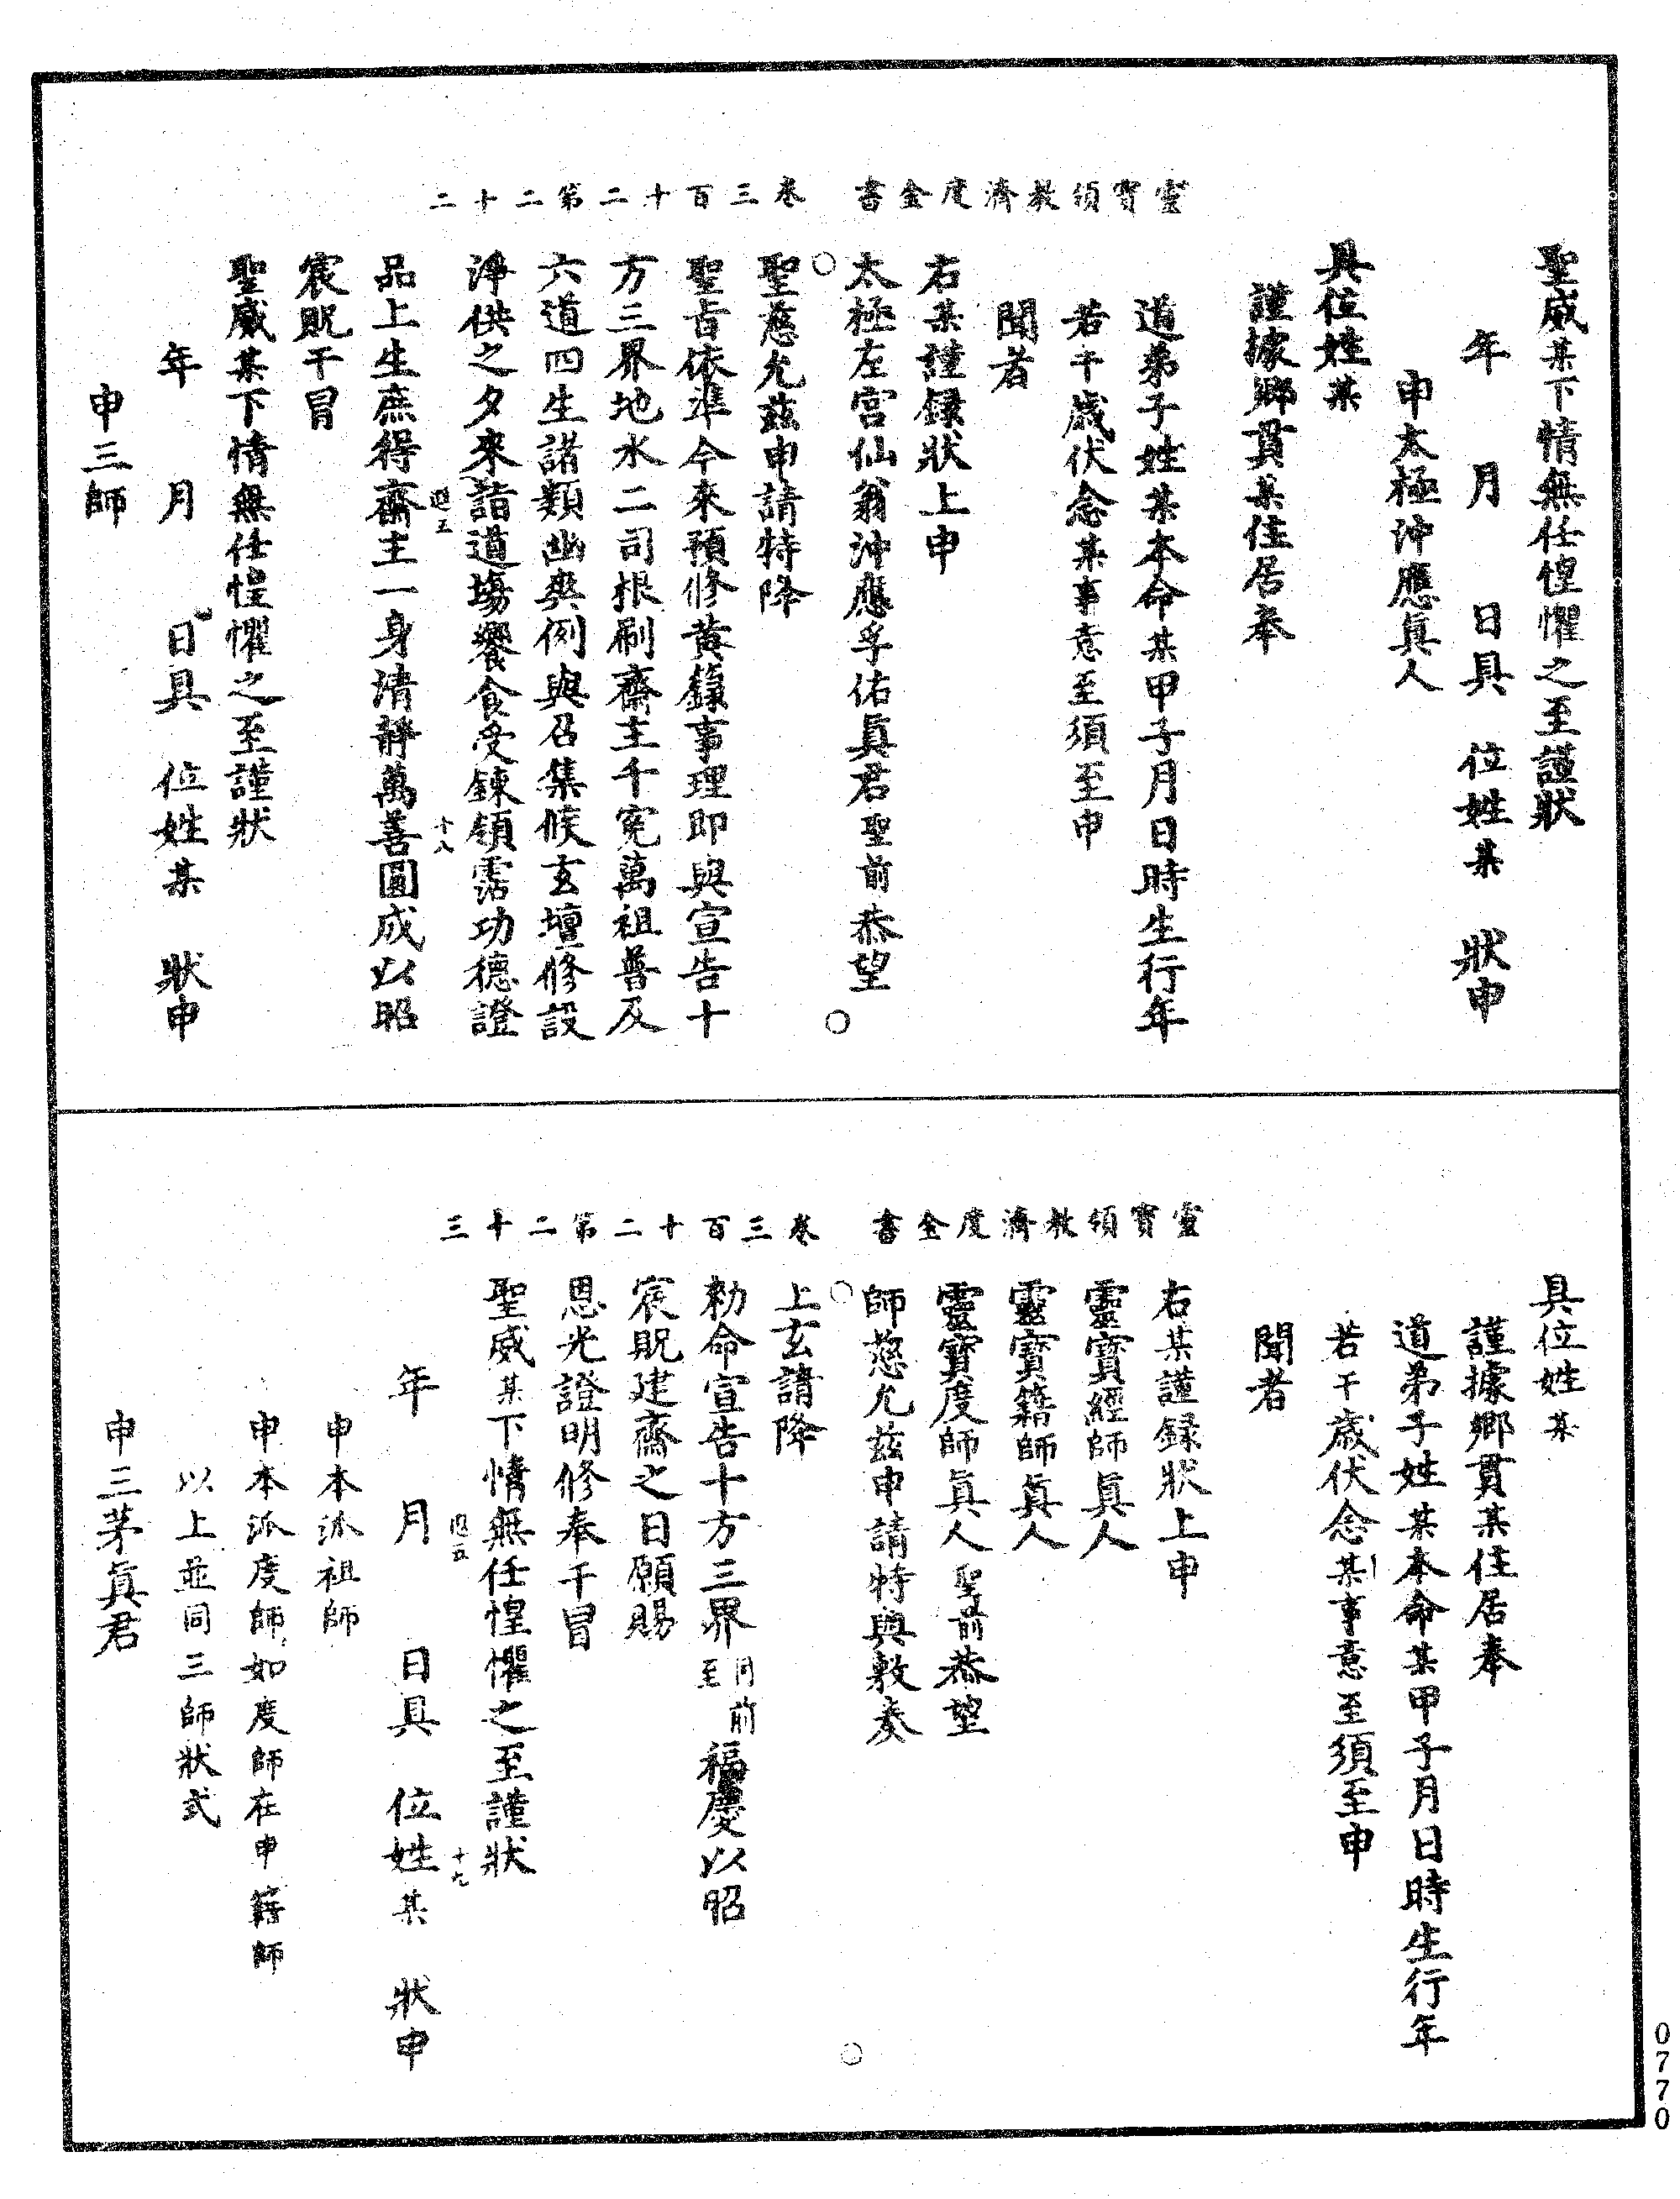 靈寶領教濟度金書　卷三百十二第二十二
聖威某下情無任惶懼之至謹狀
年　月　日具　位姓某　狀申
申太極沖應眞人
具位姓某
謹據鄉貫某住居奉
道弟子姓某本命某甲子月日時生行年
若干歲伏念某事意至須至申
聞者
右某謹録狀上申
太極左宮仙翁沖應孚佑眞君聖前恭望
聖慈允茲申請特降
聖旨依準今來預修黃籙事理即與宣告十
方三界地水二司根刷齋主千寃萬祖普及
六道四生諸類幽爽例與召集候玄壇修設
淨供之夕來詣道場饗食受鍊領霑功德證
週五
十八
品上生庶得齋主一身清靜萬善圓成以昭
宸貺干冒
聖威某下情無任惶懼之至謹狀
年　月　日具　位姓某　狀申
申三師
靈寶領教濟度金書　卷三百十二第二十三
具位姓某
謹據鄉貫某住居奉
道弟子姓某本命某甲子月日時生行年
若干歲伏念某事意至須至申
聞者
右某謹録狀上申
靈寶經師眞人
靈寶籍師眞人
靈寶度師眞人聖前恭望
師慈允茲申請特與敷奏
上玄請降
勑命宣告十方三界同前至福慶以昭
宸貺建齋之日願賜
恩光證明修奉干冒
聖威某下情無任惶懼之至謹狀
週五
十九
年　月　日具　位姓某　狀申
申本派祖師
申本派度師如度師在申籍師
以上並同三師狀式
申三茅眞君
0770